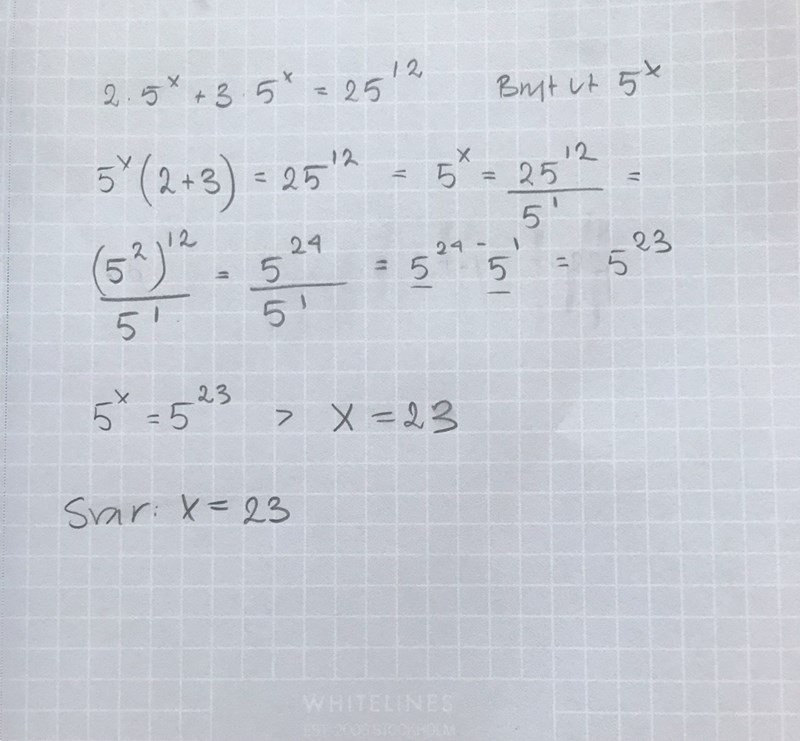 2 · 5^x + 3 · 5^x = 25^12 Bryt ut 5^x
5^x (2+3) = 25^12 = 5^x = 25^12 / 5^1 =
(5^2)^12 / 5^1 = 5^24 / 5^1 = 5^24 - 5^1 = 5^23
5^x = 5^23 > x = 23
Svar: x = 23
WHITELINES